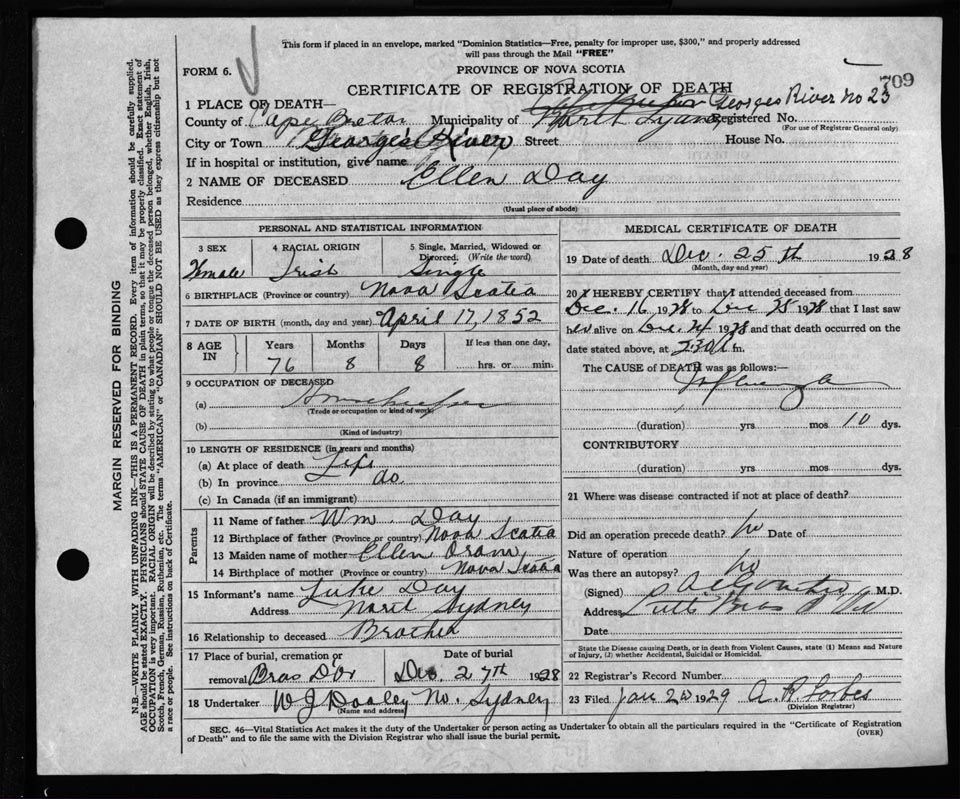 This form if placed in an envelope, marked "Dominion Statistics—Free, penalty for improper use, $300," and properly addressed
will pass through the Mail "FREE"
FORM 6.
PROVINCE OF NOVA SCOTIA
709
CERTIFICATE OF REGISTRATION OF DEATH
1 PLACE OF DEATH—
Georges River No 23
County of Cape Breton Municipality of North Sydney Registered No.
(For use of Registrar General only)
City or Town Georges River Street House No.
If in hospital or institution, give name
2 NAME OF DECEASED Ellen Day
Residence
(Usual place of abode)
PERSONAL AND STATISTICAL INFORMATION
3 SEX 4 RACIAL ORIGIN 5 Single, Married, Widowed or Divorced. (Write the word)
Female Irish Single
6 BIRTHPLACE (Province or country) Nova Scotia
7 DATE OF BIRTH (month, day and year) April 17, 1852
8 AGE IN Years Months Days If less than one day,
76 8 8 hrs. or min.
9 OCCUPATION OF DECEASED
(a) Housekeeper
(Trade or occupation or kind of work)
(b)
(Kind of industry)
10 LENGTH OF RESIDENCE (in years and months)
(a) At place of death Life
(b) In province do.
(c) In Canada (if an immigrant)
Parents
11 Name of father Wm. Day
12 Birthplace of father (Province or country) Nova Scotia
13 Maiden name of mother Ellen Oram,
14 Birthplace of mother (Province or country) Nova Scotia
15 Informant's name Luke Day
Address North Sydney
16 Relationship to deceased Brother
17 Place of burial, cremation or removal Bras D'or Date of burial Dec 27th 1928
18 Undertaker W J Dooley No. Sydney
(Name and address)
MEDICAL CERTIFICATE OF DEATH
19 Date of death Dec. 25th 1928
(Month, day and year)
20 I HEREBY CERTIFY that I attended deceased from
Dec. 16 1928 to Dec 25 1928 that I last saw
her alive on Dec. 24 1928 and that death occurred on the
date stated above, at 2.30 A m.
The CAUSE of DEATH was as follows:—
Influenza
(duration) yrs mos 10 dys.
CONTRIBUTORY
(duration) yrs mos dys.
21 Where was disease contracted if not at place of death?
Did an operation precede death? No Date of
Nature of operation
Was there an autopsy? No
(Signed) M.D.
Address Little Bras d'Or
Date
State the Disease causing Death, or in death from Violent Causes, state (1) Means and Nature
of Injury, (2) whether Accidental, Suicidal or Homicidal.
22 Registrar's Record Number
23 Filed Jan 2nd 1929 A. R. Forbes
(Division Registrar)
SEC. 46—Vital Statistics Act makes it the duty of the Undertaker or person acting as Undertaker to obtain all the particulars required in the "Certificate of Registration
of Death" and to file the same with the Division Registrar who shall issue the burial permit.
(OVER)
MARGIN RESERVED FOR BINDING
N.B.—WRITE PLAINLY WITH UNFADING INK—THIS IS A PERMANENT RECORD. Every item of information should be carefully supplied.
AGE should be stated EXACTLY. PHYSICIANS should STATE CAUSE OF DEATH in plain terms, so that it may be properly classified. Exact statement of
OCCUPATION is very important. RACIAL ORIGIN will be described by stating to what people or tongue the deceased person belonged, whether English, Irish,
Scotch, French, German, Russian, Ruthenian, etc. The terms "AMERICAN" or "CANADIAN" SHOULD NOT BE USED as they express citizenship but not
a race or people. See instructions on back of Certificate.